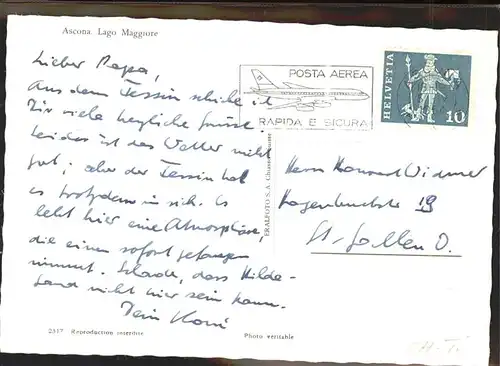 Ascona. Lago Maggiore
Lieber Papa,
Aus dem Tessin schicke ich
Dir viele herzliche Grüsse.
Leider ist das Wetter nicht
gut; aber der Tessin hat
es trotzdem in sich. Es
lebt hier eine Atmosphäre,
die einen sofort gefangen
nimmt. Schade, dass Hilde-
Gard nicht hier sein kann.
Dein Koni
2517 Reproduction interdite
Photo véritable
ERALFOTO S. A.
POSTA AEREA
RAPIDA E SICURA
HELVETIA
10
Herrn Konrad Widmer
19
St. Gallen O.